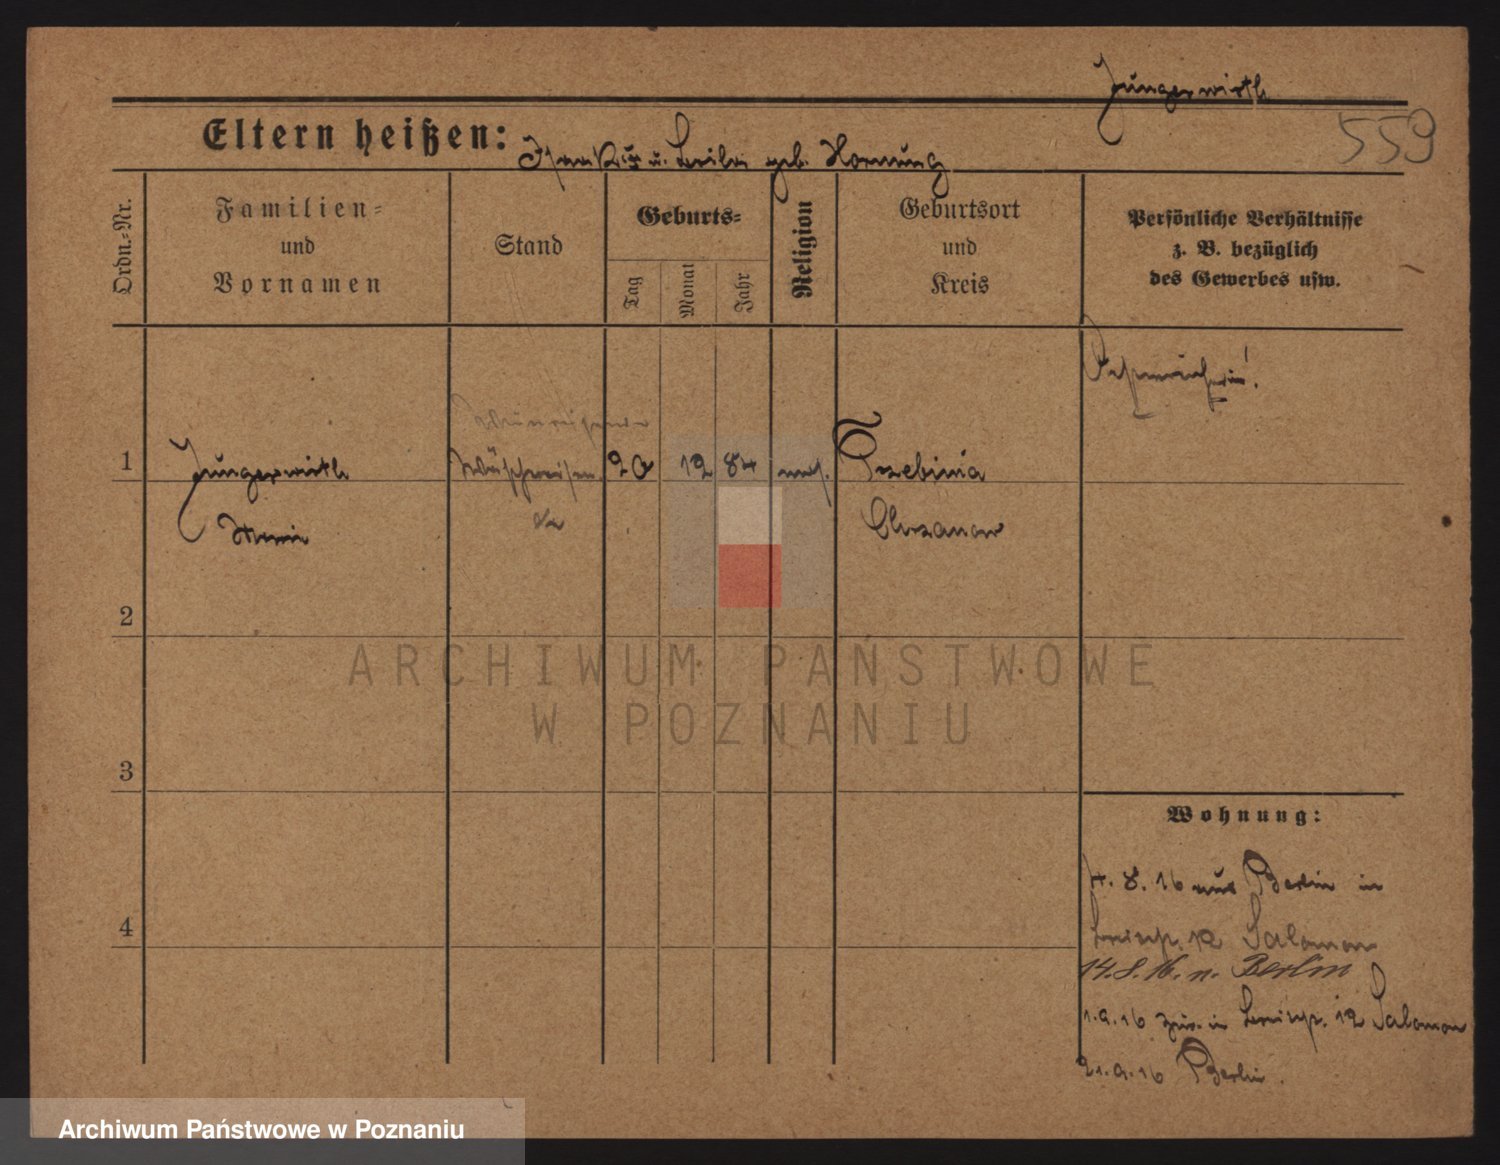 Jungerwirth
559
Eltern heißen: u. geb. Hornung
Ordn.-Nr.
Familien-
und
Vornamen
Stand
Geburts-
Tag
Monat
Jahr
Religion
Geburtsort
und
Kreis
Persönliche Verhältnisse
z. B. bezüglich
des Gewerbes usw.
Österreicherin!
1
Jungerwirth
12 84 mos. Trzebinia
Chrzanow
2
3
4
ARCHIWUM PAŃSTWOWE
W POZNANIU
Wohnung:
4. 8. 16 aus Berlin in
12 Salomon
14. 8. 16. n. Berlin
1. 9. 16 zur. in 12 Salomon
21. 9. 16 Berlin.
Archiwum Państwowe w Poznaniu